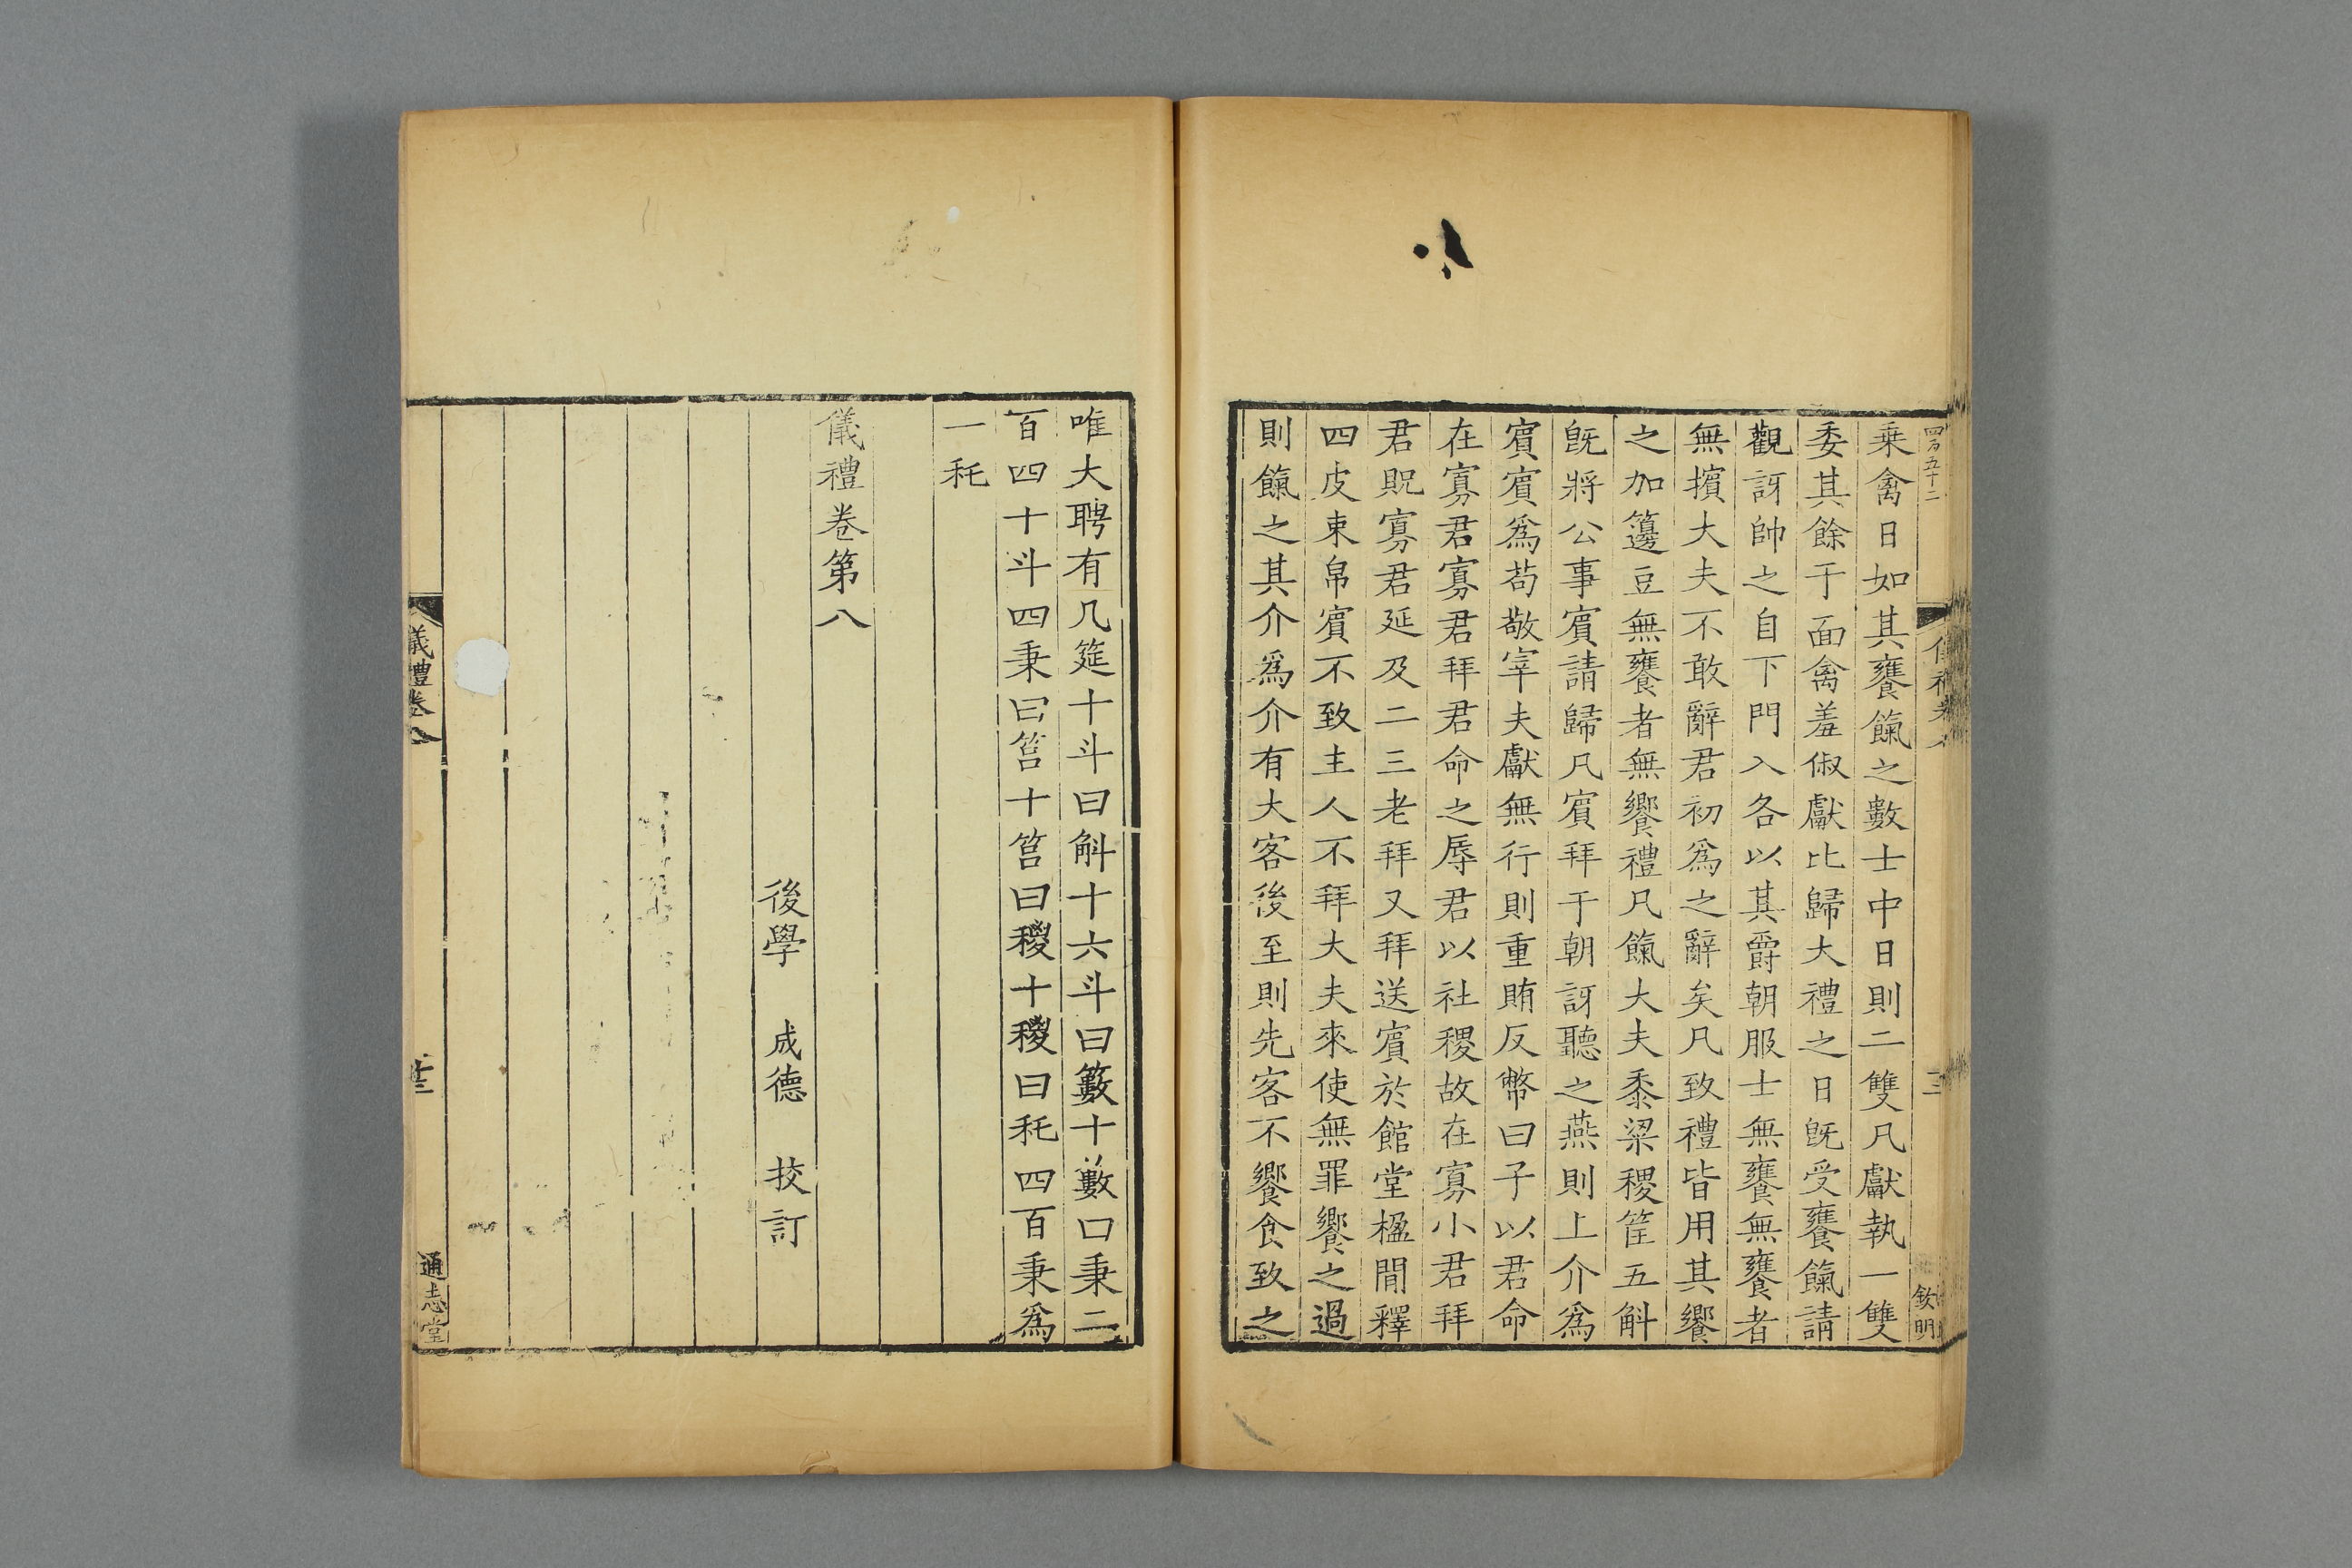 四百五十二
乗禽日如其饔餼之數士中日則二雙凡獻執一雙
委其餘于面禽羞俶獻比歸大禮之日旣受饔餼請
觀訝帥之自下門入各以其爵朝服士無饔無饔者
無擯大夫不敢辭君初爲之辭矣凡致禮皆用其饗
之加籩豆無饔者無饗禮凡餼大夫黍粱稷筐五斛
旣將公事賓請歸凡賓拜于朝訝聽之燕則上介爲
賓賓爲苟敬宰夫獻無行則重賄反幣曰子以君命
在寡君寡君拜君命之辱君以社稷故在寡小君拜
君貺寡君延及二三老拜又拜送賓於館堂楹閒釋
四皮束帛賓不致主人不拜大夫來使無罪饗之過
則餼之其介爲介有大客後至則先客不饗食致之
欽明
唯大聘有几筵十斗曰斛十六斗曰籔十籔口秉二
百四十斗四秉曰筥十筥曰稯十稯曰秅四百秉爲
一秅
儀禮卷第八
後學 成德 挍訂
儀禮卷八
通志堂